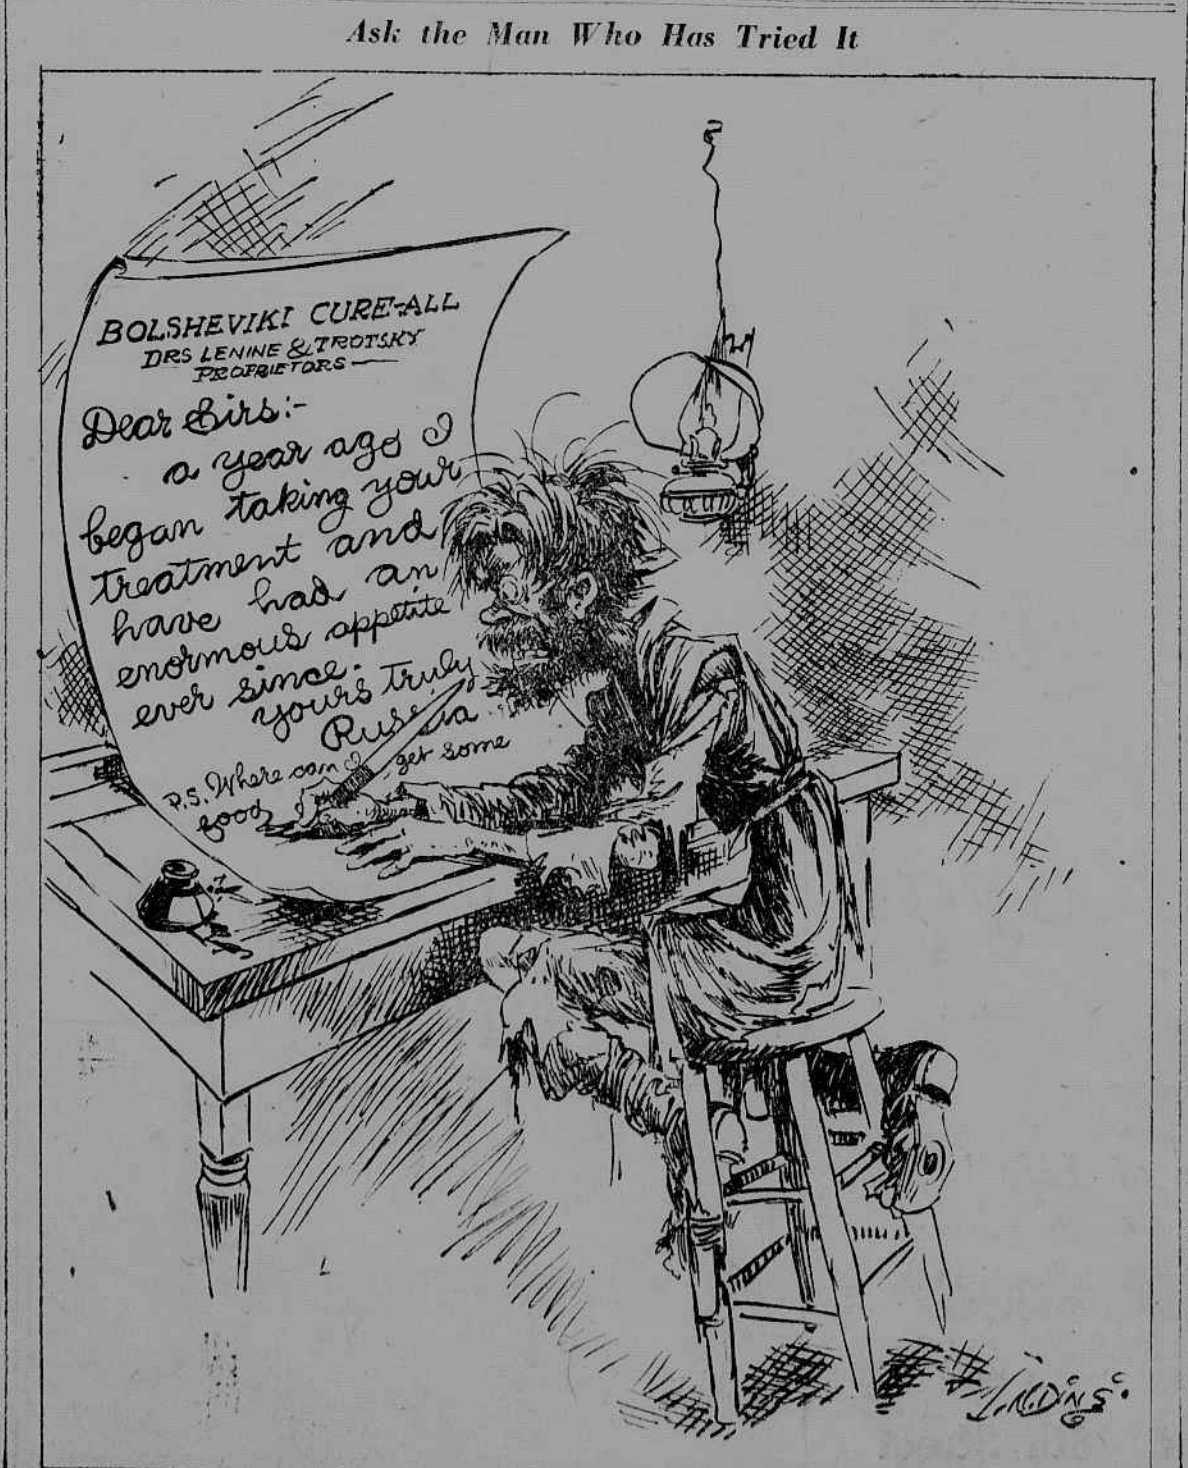 Ask the Man Who Has Tried It
BOLSHEVIKI CURE-ALL
DRS LENINE & TROTSKY
PROPRIETORS —
Dear Sirs:-
a year ago I
began taking your
treatment and
have had an
enormous appetite
ever since.
yours truly
Russia
P.S. Where can I get some
food
J.N. DING